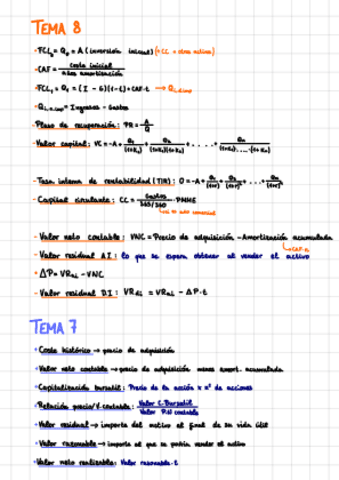 TEMA 8
- FCL₀ = Q₀ = A (inversión inicial) (+ CC + otros activos)
- CAF = coste inicial / años amortización
- FCL₁ = Q₁ = (I - G)(1-t) + CAF·t → Q d. imp
- Q a. imp = Ingresos - Gastos
- Plazo de recuperación: PR = A/Q
- Valor capital: VC = -A + Q₁/(1+k₁) + Q₂/(1+k₁)(1+k₂) + ..... + Qn/(1+k₁).....(1+kn)
- Tasa interna de rentabilidad (TIR): 0 = -A + Q₁/(1+r) + Q₂/(1+r)² + ... + Qn/(1+r)ⁿ
- Capital circulante: CC = Gastos / 365/360 · PMME
si es año comercial
- Valor neto contable: VNC = Precio de adquisición - Amortización acumulada
CAF·n
- Valor residual A.I.: lo que se espera obtener al vender el activo
+ ΔP = VRai - VNC
- Valor residual D.I.: VRdi = VRai - ΔP·t
TEMA 7
• Coste histórico → precio de adquisición
• Valor neto contable → precio de adquisición menos amort. acumulada
• Capitalización bursátil: Precio de la acción x nº de acciones
• Relación precio/V. contable: Valor C. Bursátil / Valor P.N contable
• Valor residual → importe del activo al final de su vida útil
• Valor razonable → importe al que se podría vender el activo
• Valor neto realizable: Valor razonable - t